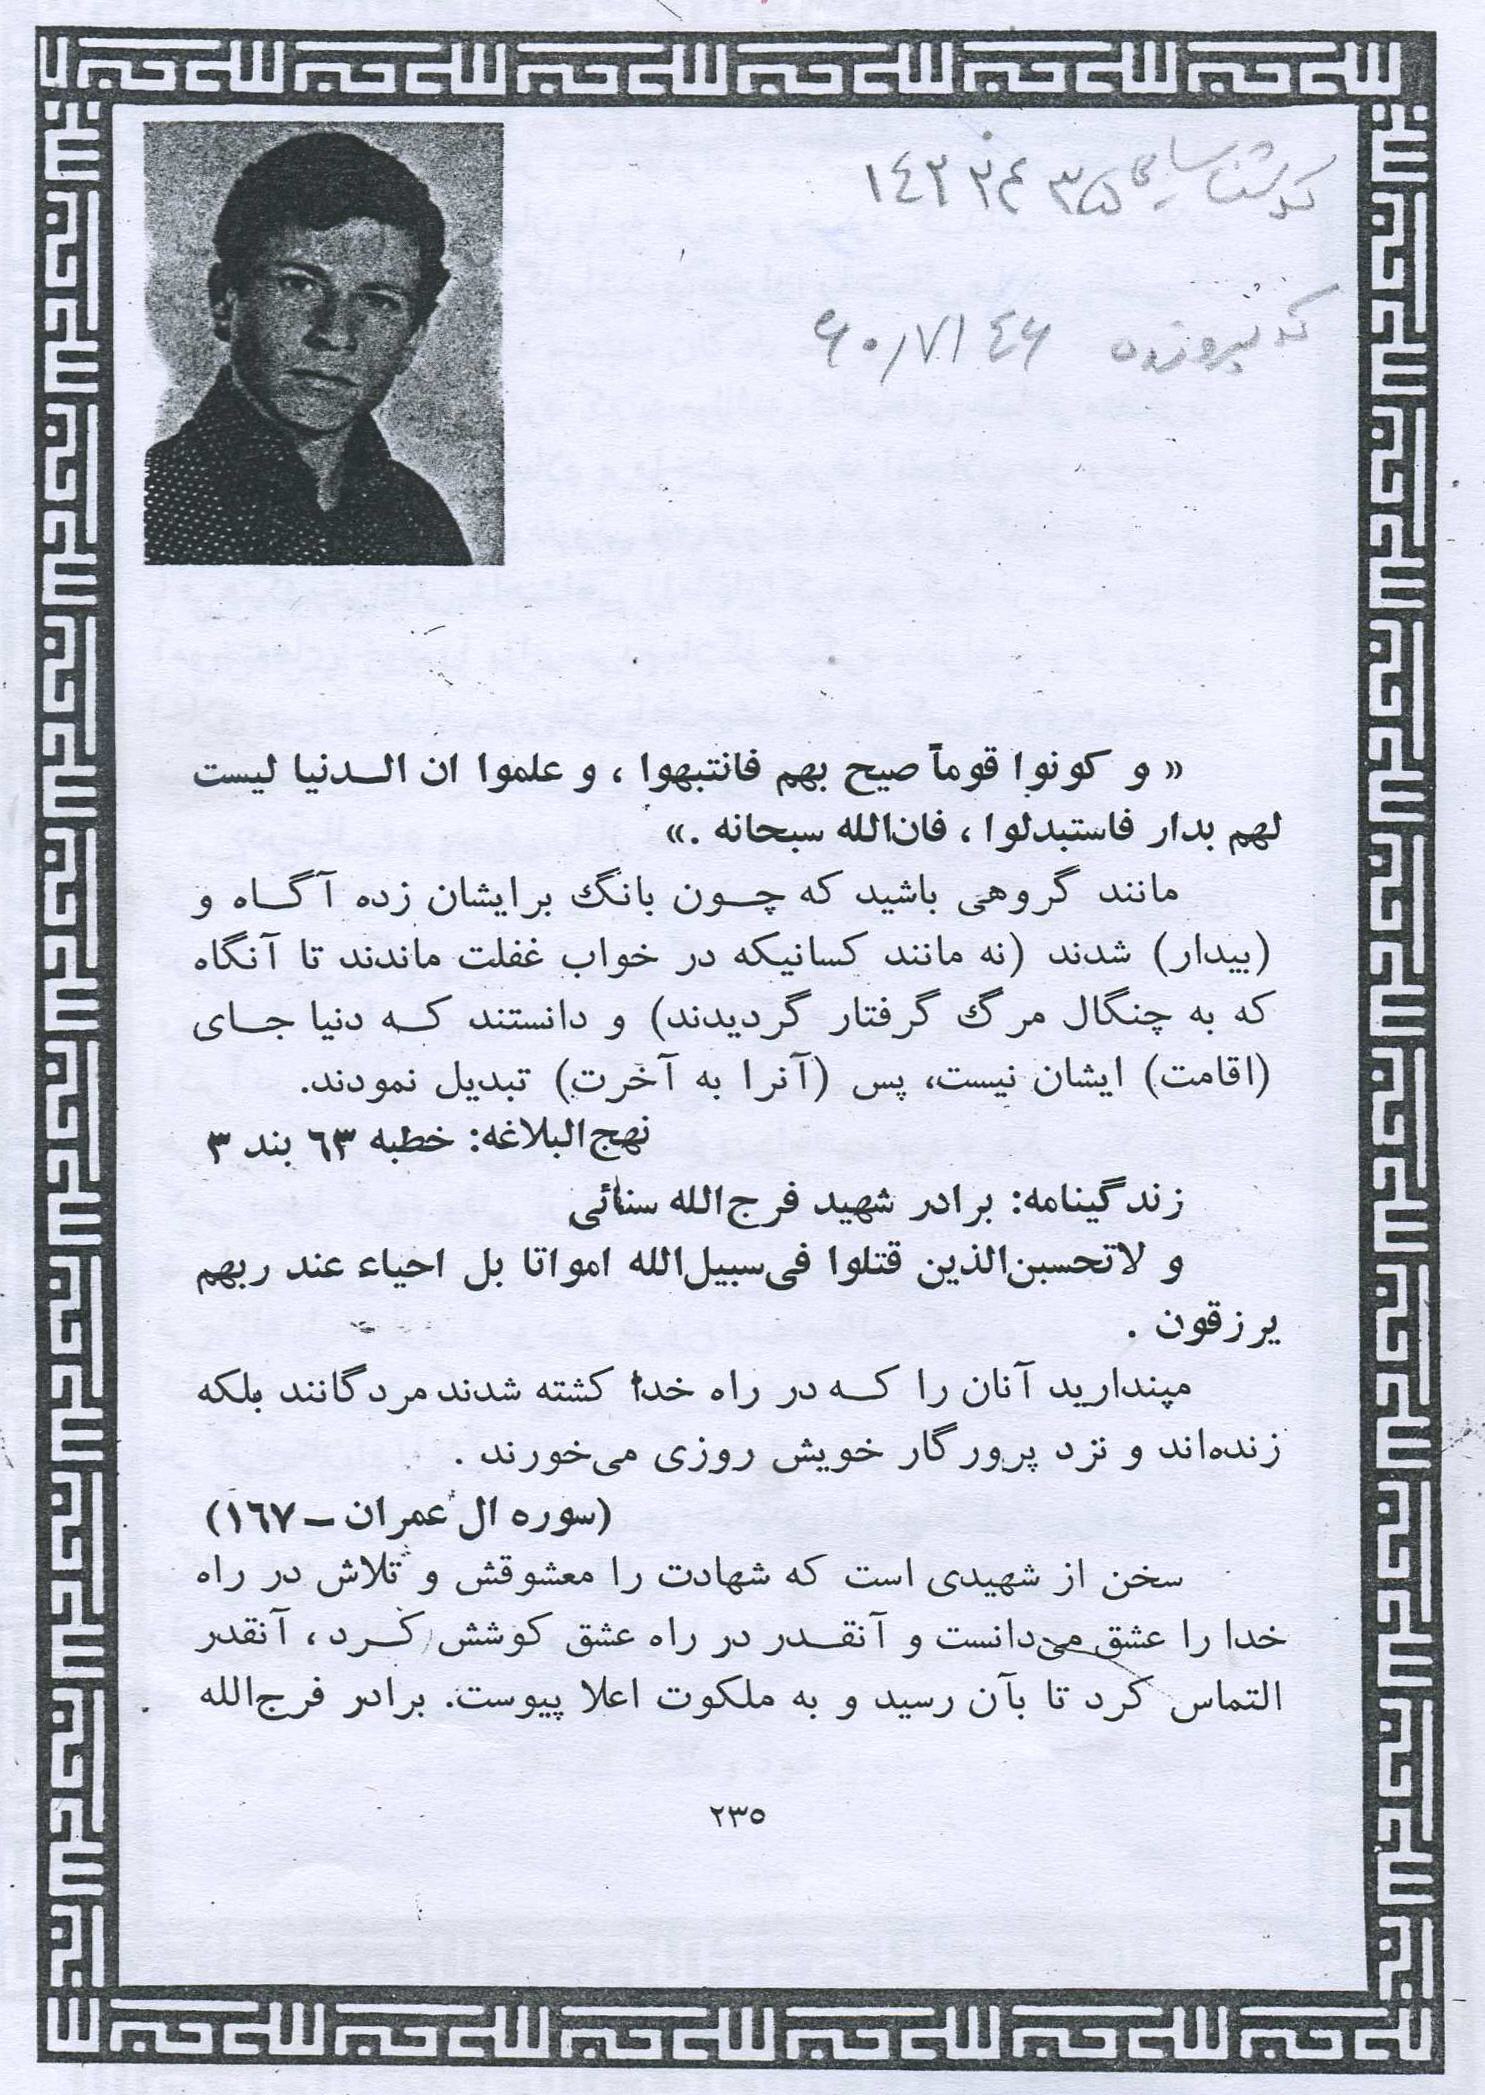 کد شناسایی
« و کونوا قوماً صیح بهم فانتبهوا ، و علموا ان الـدنیا لیست
لهم بدار فاستبدلوا ، فان‌الله سبحانه .»
مانند گروهی باشید که چـون بانگ برایشان زده آگـاه و
(بیدار) شدند (نه مانند کسانیکه در خواب غفلت ماندند تا آنگاه
که به چنگال مرگ گرفتار گردیدند) و دانستند کـه دنیا جـای
(اقامت) ایشان نیست، پس (آنرا به آخرت) تبدیل نمودند.
نهج‌البلاغه: خطبه ٦٣ بند ٣
زندگینامه: برادر شهید فرج‌الله سنائی
و لاتحسبن‌الذین قتلوا فی‌سبیل‌الله امواتا بل احیاء عند ربهم
یرزقون .
مپندارید آنان را کـه در راه خدا کشته شدند مردگانند بلکه
زنده‌اند و نزد پرورگار خویش روزی می‌خورند .
(سوره ال عمران ــ ١٦٧)
سخن از شهیدی است که شهادت را معشوقش و تلاش در راه
خدا را عشق می‌دانست و آنقـدر در راه عشق کوشش کـرد ، آنقدر
التماس کرد تا بآن رسید و به ملکوت اعلا پیوست. برادر فرج‌الله
٢٣٥